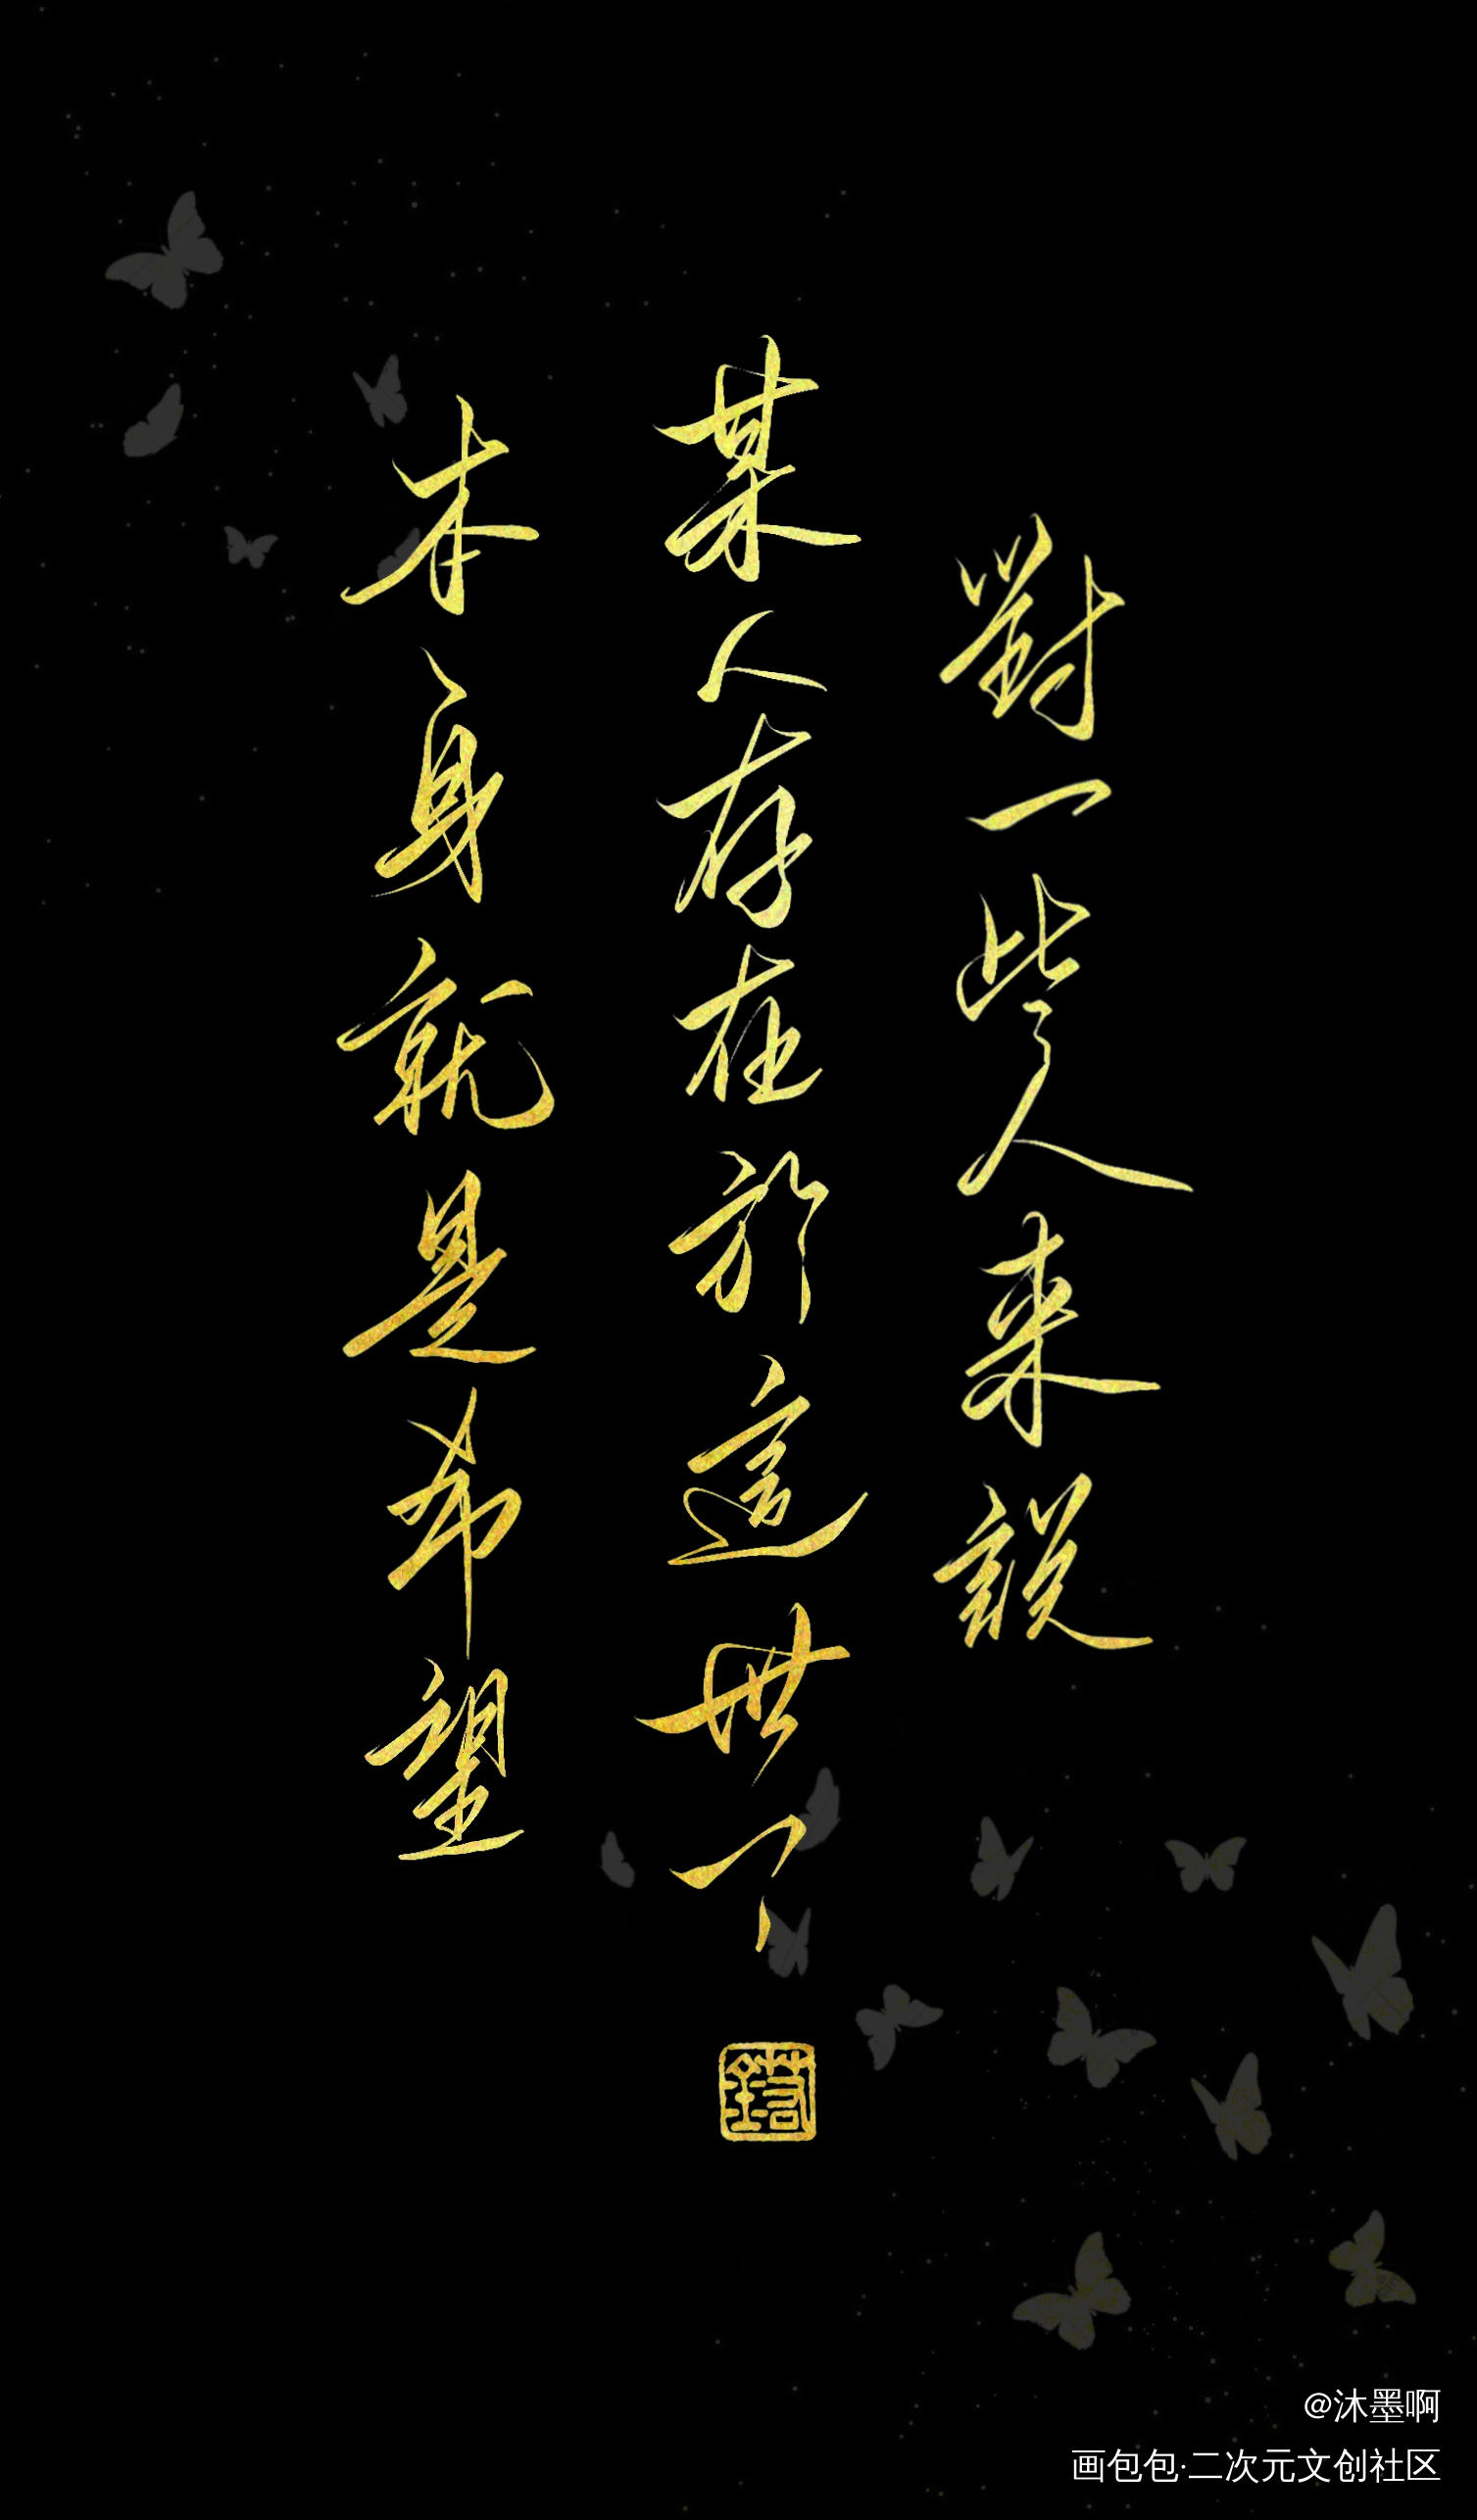 對一些人来說
某人存在於這世上
本身就是希望
@沐墨啊
画包包·二次元文创社区